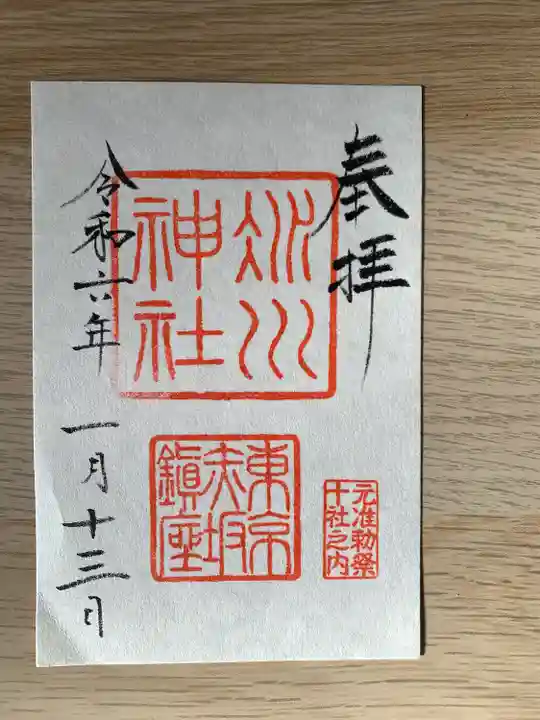 奉拝
氷川
神社
東京
赤坂
鎮座
元准勅祭
十社之内
令和六年 一月十三日